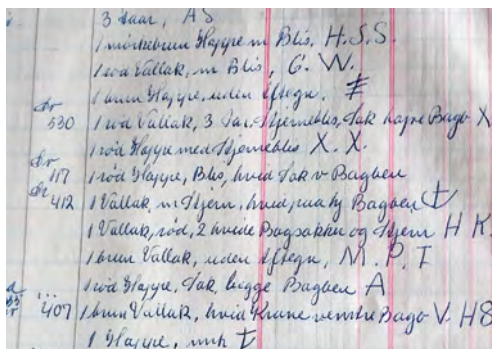 3 Aar, AS
1 mörkebrun Hoppe m Blis, H.S.S.
1 röd Vallak, m Blis, G. W.
1 brun Hoppe, uden Aftegn.
No 530 1 röd Vallak, 3 Aar, Stjerneblis, Sok højre Bagb X
1 röd Hoppe med Stjerneblis X. X.
No 117 1 röd Hoppe, Blis, hvid Sok v Bagben
No 412 1 Vallak, m Stjern, hvid paa hj Bagben
1 Vallak, röd, 2 hvide Bagsokker og Stjern H K.
1 brun Vallak, uden Aftegn, M. P. I
1 röd Hoppe, Sok, begge Bagben A
407 1 brun Vallak, hvid Krone venstre Bagb V. H8
1 Hoppe, mrk